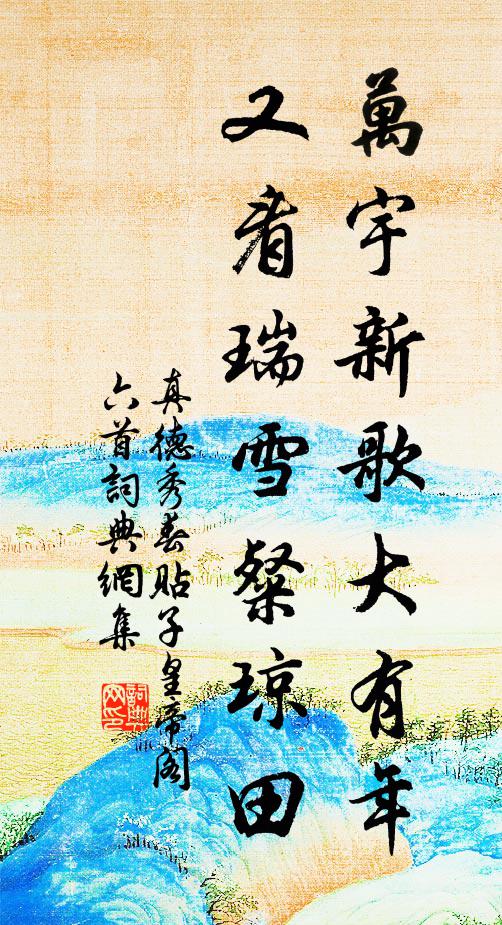 萬宇新歌大有年
又看瑞雪粲琼田
真德秀春貼子皇帝閣
六首詞典網集
詞典網印